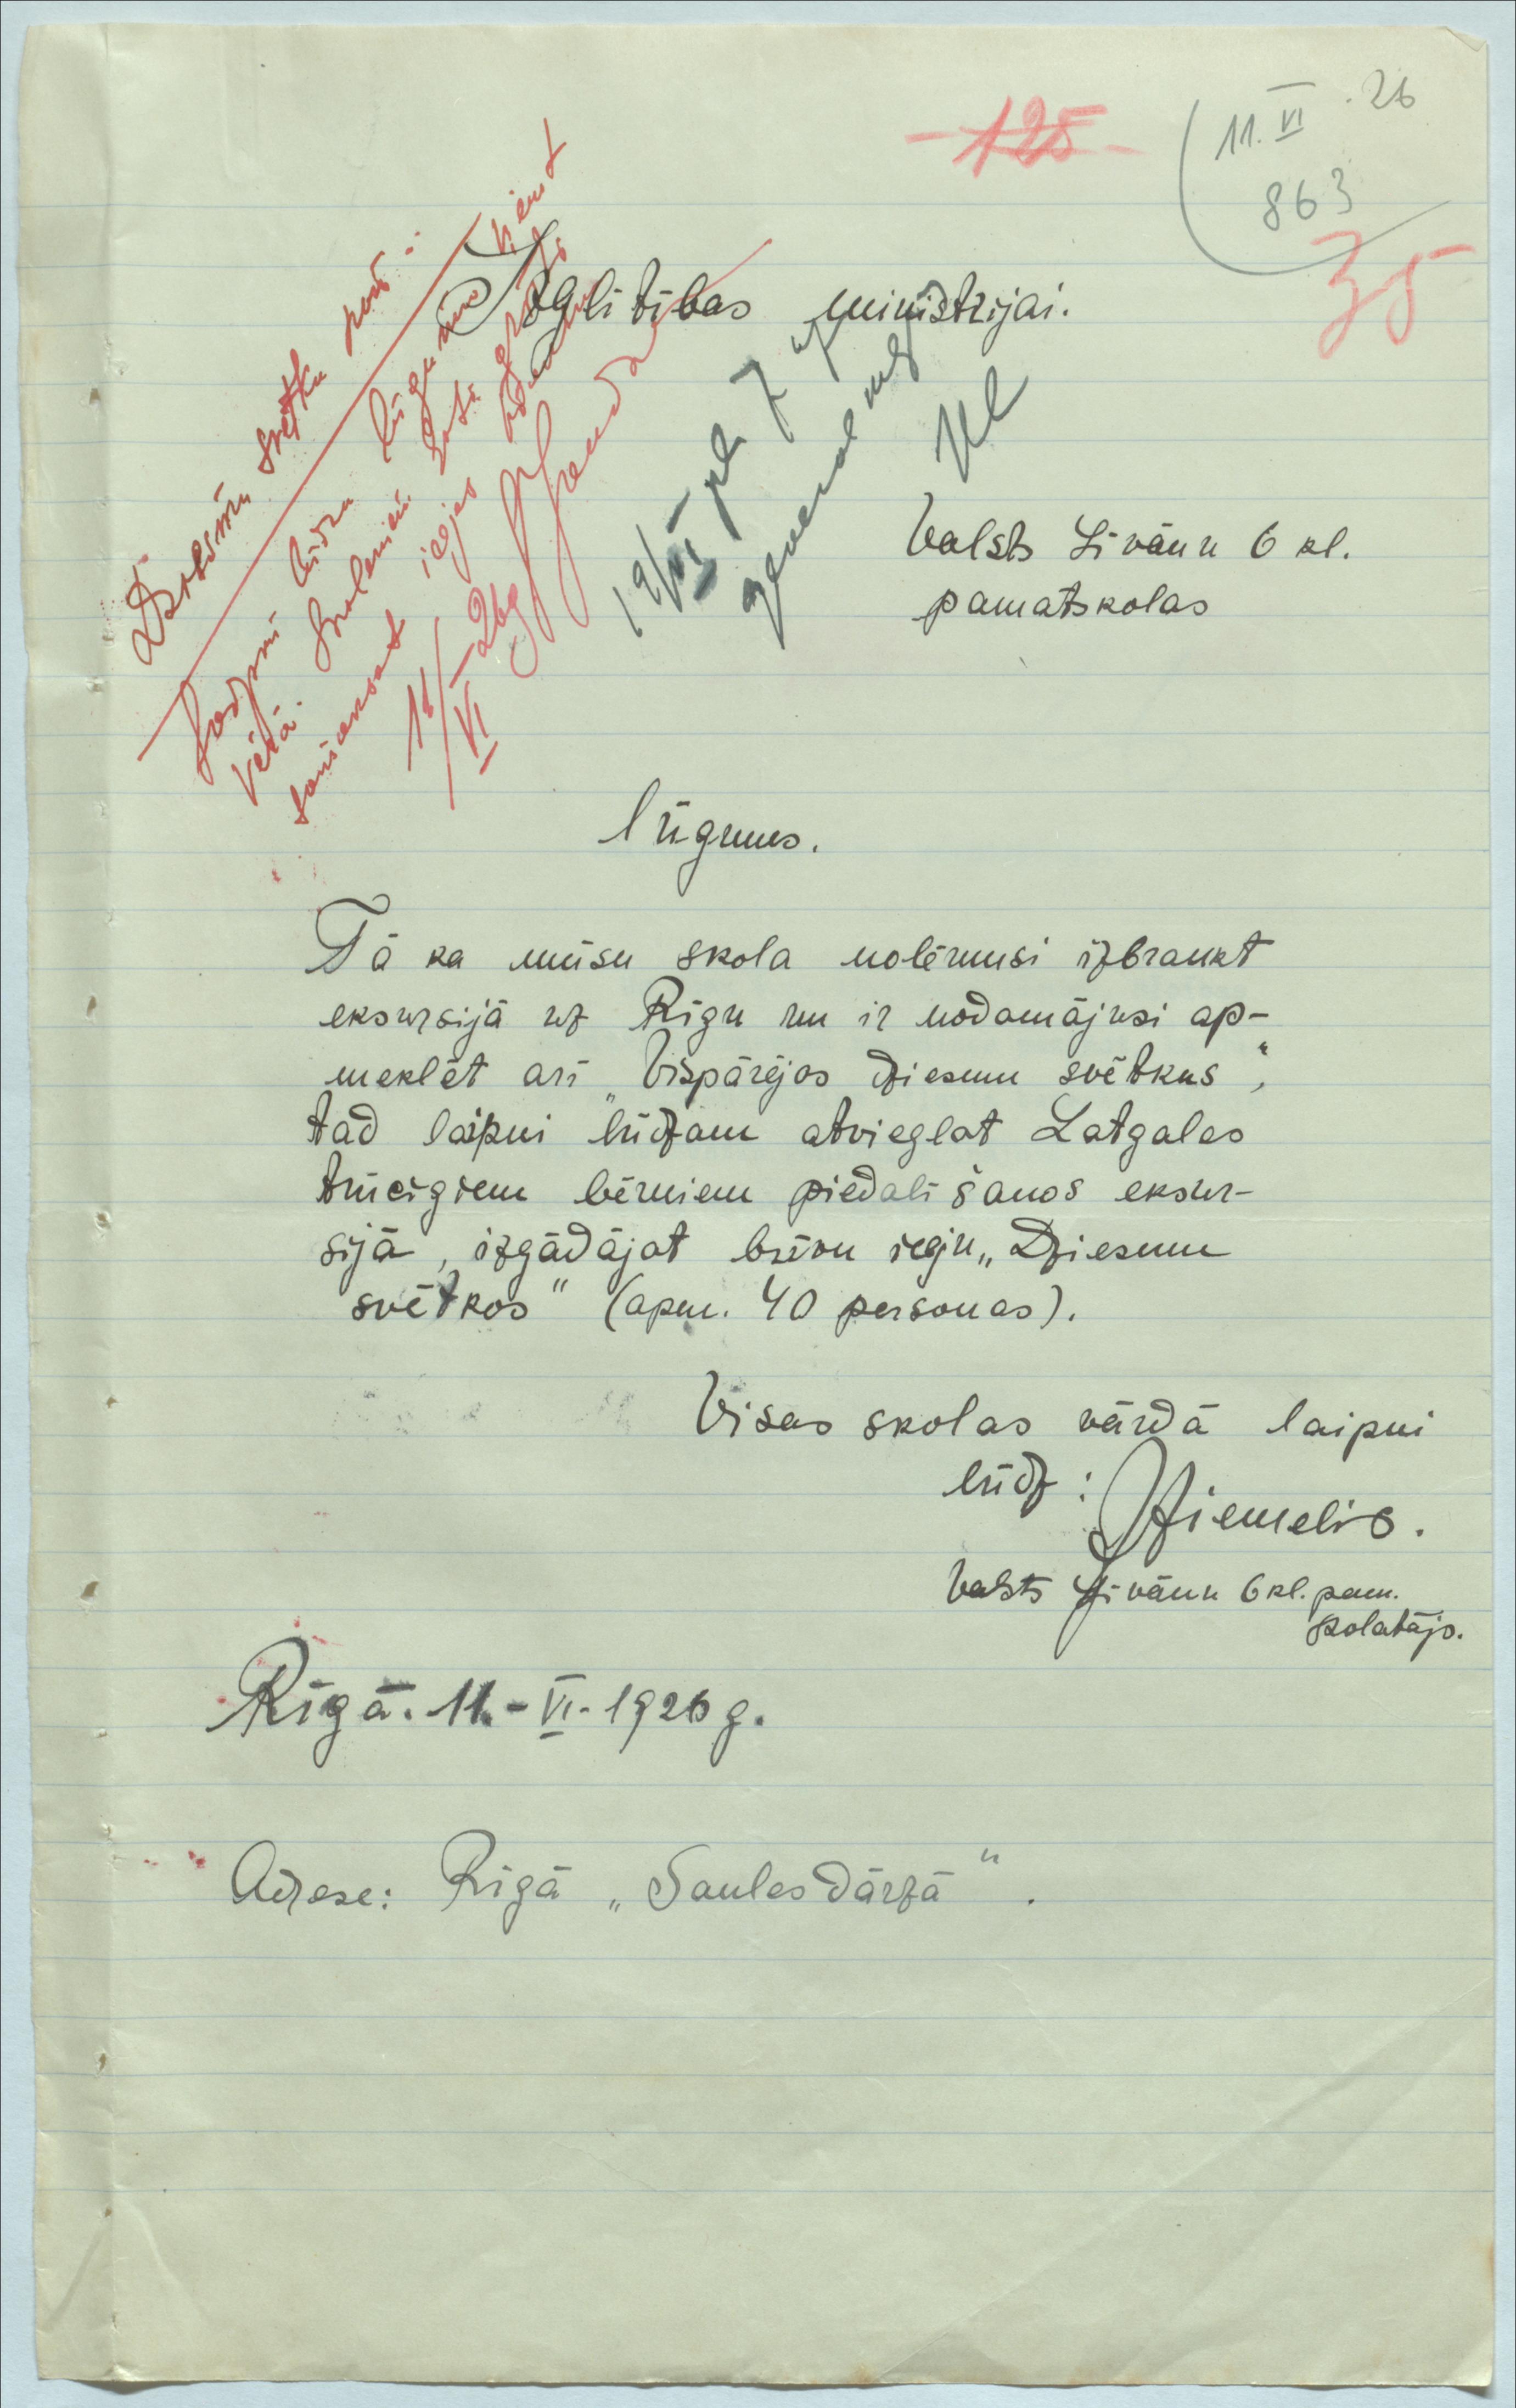 -125-
11. VI . 26
863
35
Izglītības ministrijai.
Dziesmu svētku
laipni lūdzu lūgumu ņemt
vērā.
samaksāt ieejas
11/VI-26g
12/VI
Valsts Līvānu 6 kl.
pamatskolas
lūgums.
Tā ka mūsu skola nolēmusi izbraukt
ekskursijā uz Rīgu un ir nodomājusi ap-
meklēt arī „Vispārējos dziesmu svētkus",
tad laipni lūdzam atvieglot Latgales
trūcīgiem bērniem piedalīšanos ekskur-
sijā, izgādājot brīvu ieeju „Dziesmu
svētkos" (apm. 40 personas).
Visas skolas vārdā laipni
lūdz: Dziemelis.
Valsts Līvānu 6 kl. pam.
skolotājs.
Rīgā. 11.-VI-1926 g.
Adrese: Rīgā „Saulesdārzā".